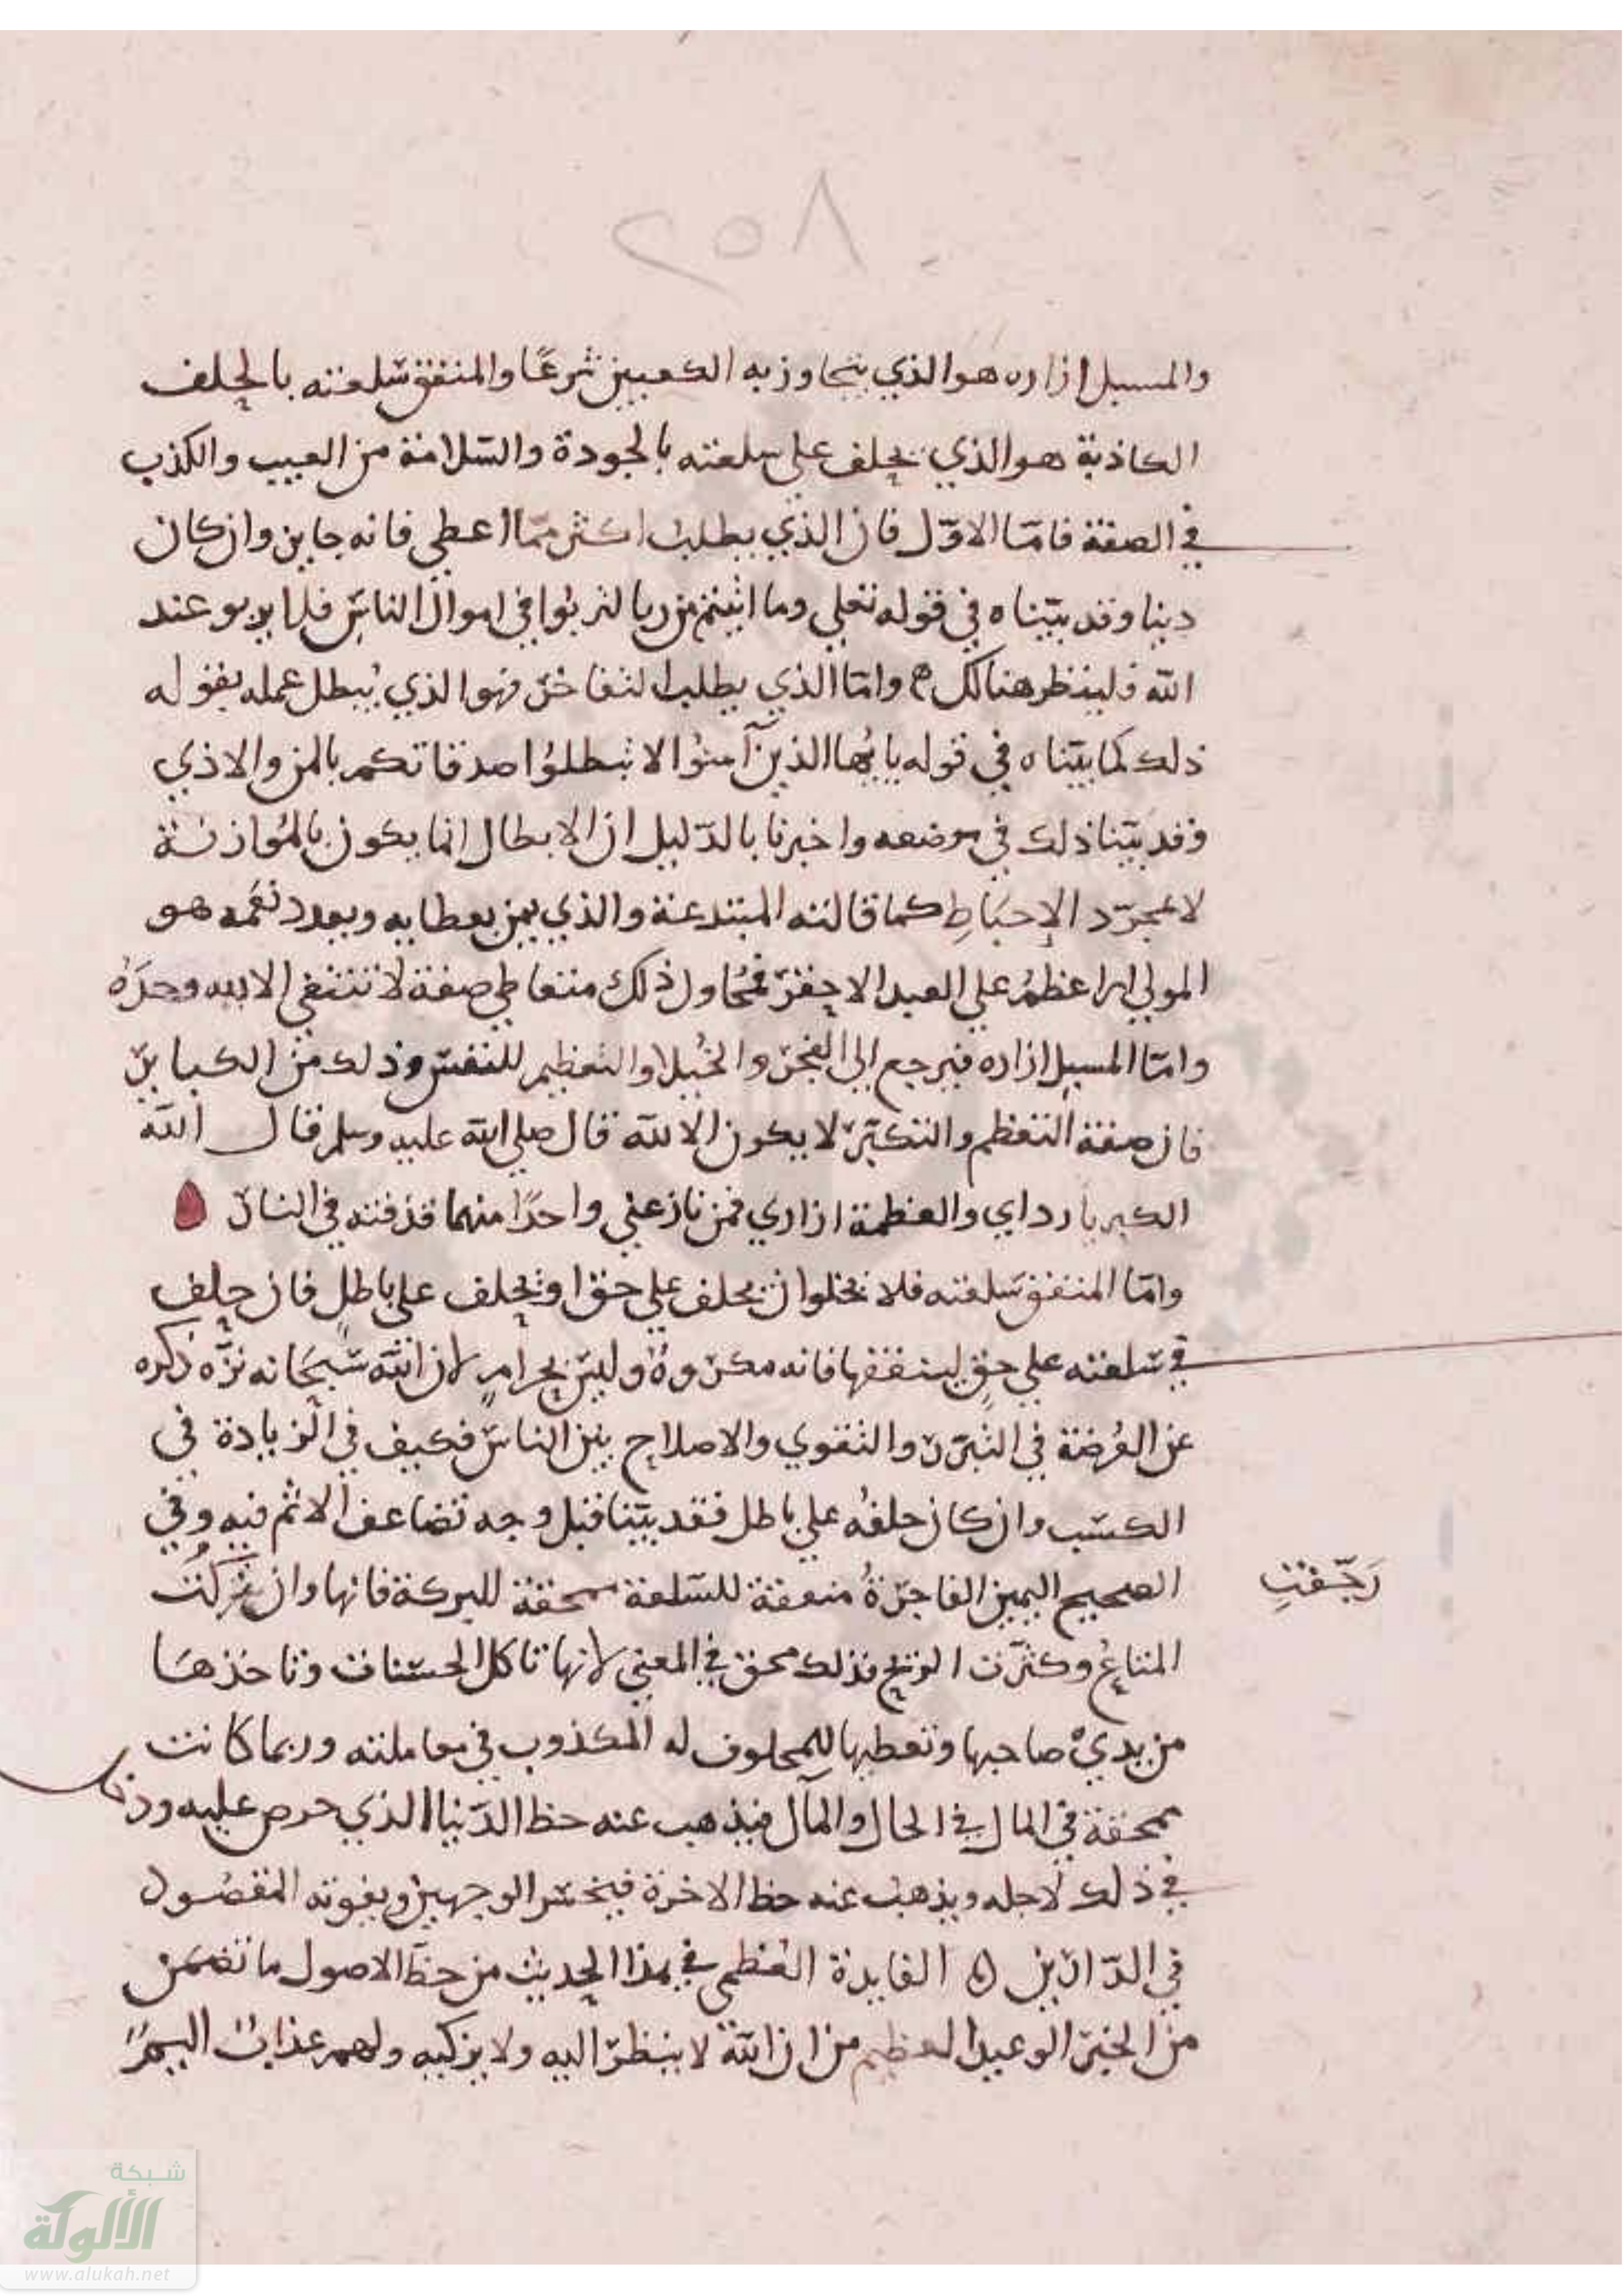 ٢٥٨
والمسبل ازاره هو الذي يتجاوز به الكعبين شرعًا والمنفق سلعته بالحلف
الكاذبة هو الذي يحلف على سلعته بالجودة والسّلامة من العيب والكذب
في الصفة فامّا الاوّل فان الذي يطلب اكثر ممّا اعطي فانه جايز وان كان
دينا وقد بيّناه في قوله تعلي وما اتيتم من ربا لتربوا في اموال الناس فلا يربو عند
الله فلينظر هنالك وامّا الذي يطلب التفاخر فهو الذي يُبطل عمله بقوله
ذلك كما بيّناه في قوله يايّها الذين آمنوا لا تبطلوا صدقاتكم بالمن والاذي
وقد بيّنا ذلك في موضعه واخبرنا بالدّليل ان الابطال انما يكون بالمُوازنة
لا بمجرّد الإحبَاطِ كما قالته المبتدعة والذي يمن بعطايه ويعدد نعَمه هو
المولي الاعظمُ علي العبد الاحقر فمُحاول ذلك متعاطي صفة لا تنبغي الا لله وحدَهُ
وامّا المسبل ازاره فيرجع الى الفخر والخُيلا والتعظيم للنفس وذلك من الكباير
فان صفة التعظم والتكبّر لا يكون الا لله قال صلى الله عليه وسلم قال الله
الكبريا رداي والعظمة ازاري فمن نازعني واحدًا منهما قذفته في النار
وامّا المنفق سَلعته فلا يخلوا ان يحلف علي حق او يحلف على باطل فان حلف
في سَلعته علي حقٍ لينفقها فانه مكروهٌ وليس بحرامٍ لان الله سُبحَانه نزّه ذكره
عن العُرضة في البّر والتقوي والاصلاح بين الناس فكيف في الزيادة في
الكسب وان كان حلفُه على باطل فقد بيّنا قبل وجه تضاعف الاثم فيه وفي
الصحيح اليمين الفاجرةُ منفقة للسّلعة ممحقة للبركة فانها وان
رَجّفتِ
المتاعُ وكثّرت الربح فذلك محق في المعني لانها تاكل الحسنات وتاخذهَا
من يديْ صاحبها وتعطيها للمحلوف له المكذوب في معاملته وربما كانت
ممحقة في المال في الحال والمآل فيذهب عنه حظ الدّنيا الذي حرص عليه
في ذلك لاجله ويذهب عنه حظ الاخرة فيخسر الوجهين ويفوته المقصُود
في الدّارين الفايدة العُظمي في هذا الحديث من حظ الاصول ما تضمن
من الخبر الوعيد العظيم من ان الله لا ينظر اليه ولا يزكيه ولهم عذابٌ اليمٌ
شبكة
الألوكة
www.alukah.net